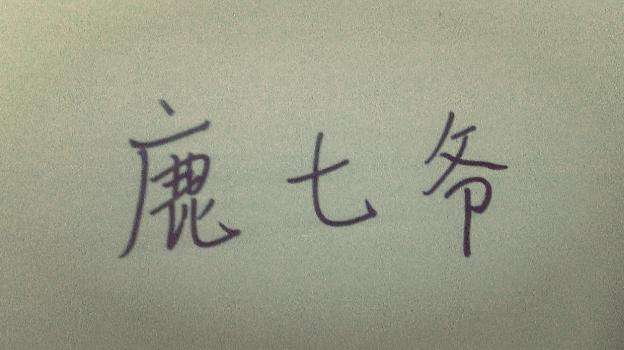 鹿七爷